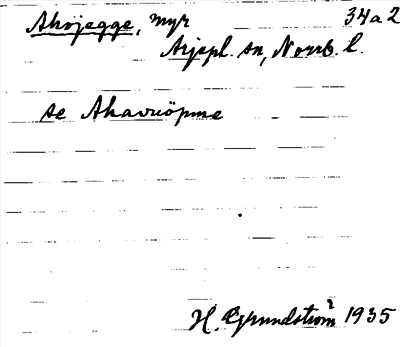 Ahojegge, myr 34a2
Arjepl. sn, Norrb. l.
se Ahavuöpme
H. Grundström 1935